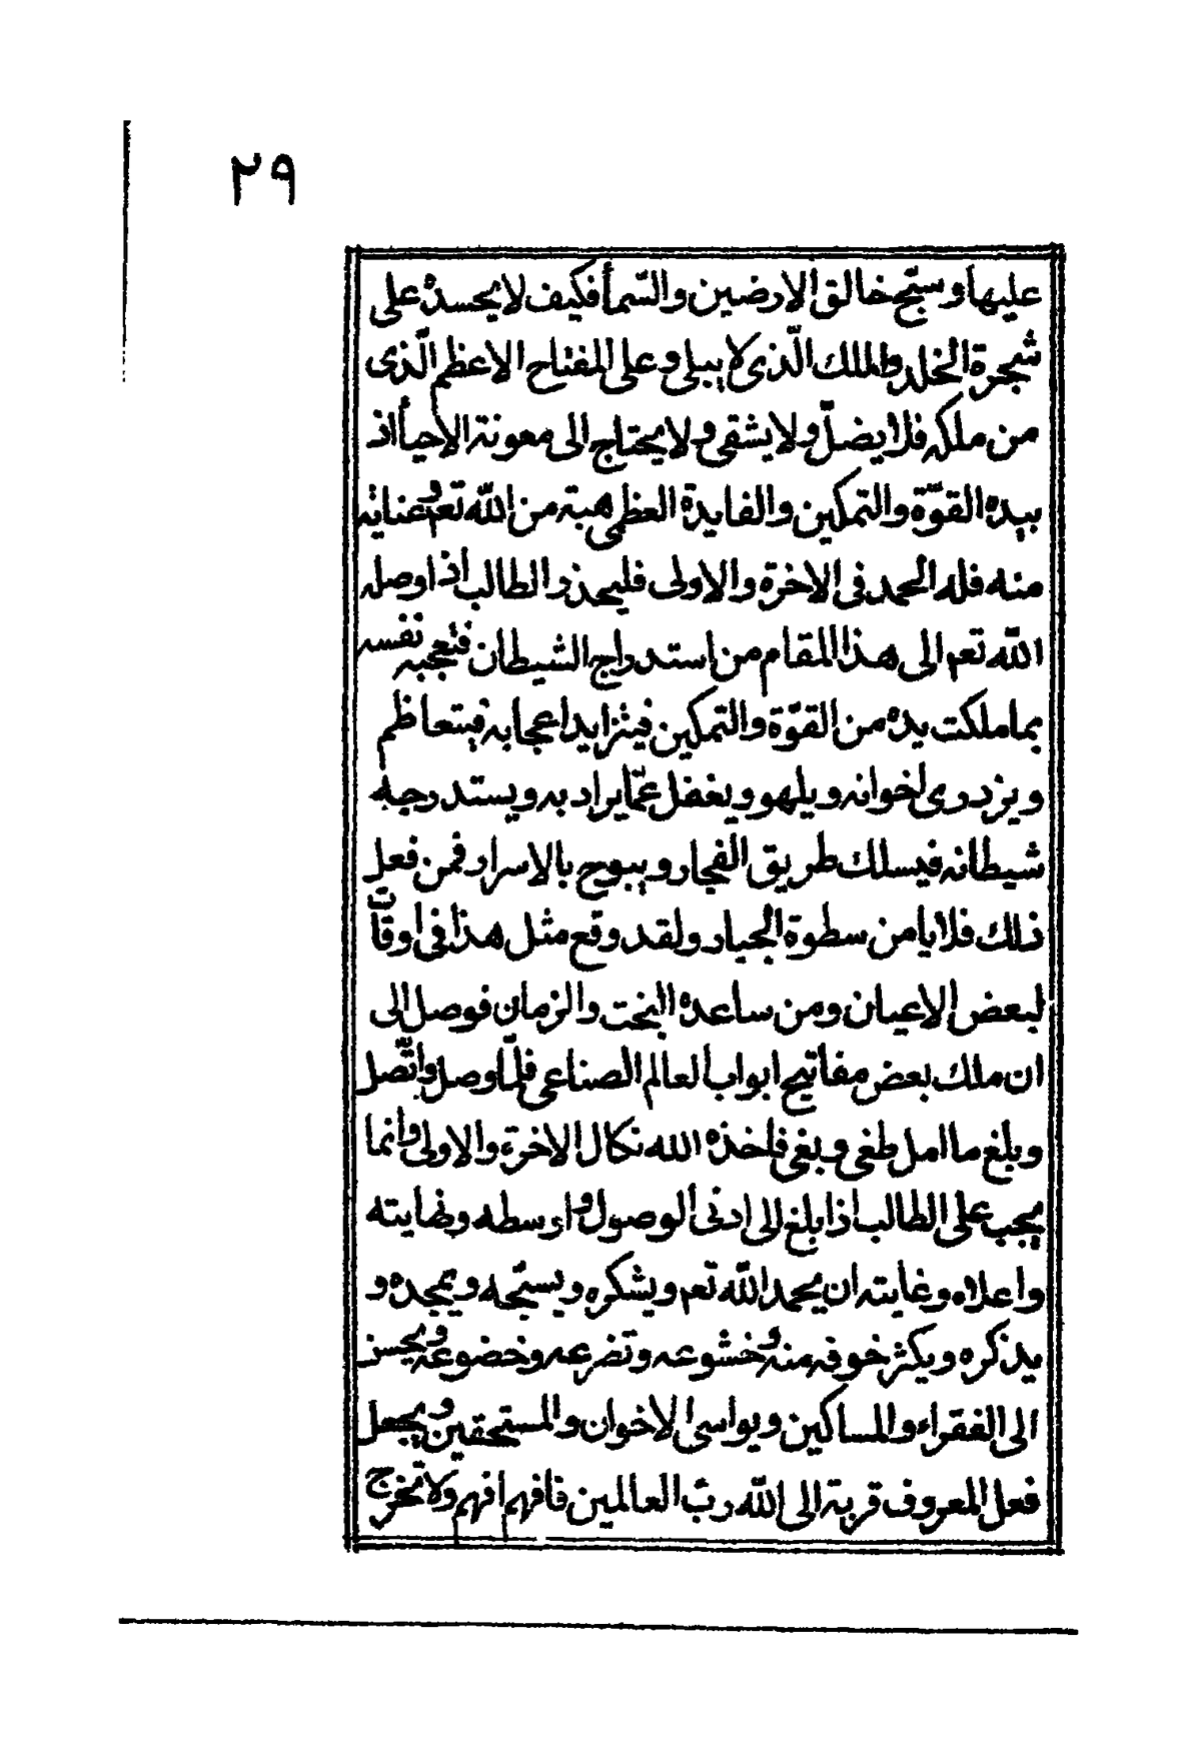 ٢٩
عليها وسبّح خالق الارضين والسّمأ فكيف لا يحسده على
شجرة الخلد والملك الّذى لا يبلى وعلى المفتاح الاعظم الّذى
من ملكه فلا يضلّ ولا يشقى ولا يحتاج الى معونة الأحيأ اذ
بيده القوّة والتمكين والفايدة العظمى هبة من اللّه تعم وعناية
منه فله الحمد فى الاخرة والاولى فليحذر الطالب اذا وصله
اللّه تعم الى هذا المقام من استدراج الشيطان فتعجبه نفسه
بما ملكت يده من القوّة والتمكين فيتزايد اعجابه فيتعاظم
ويزدرى اخوانه ويلهو ويغفل عمّا يراد به ويستدرجه
شيطانه فيسلك طريق الفجار ويبوح بالاسرار فمن فعل
ذلك فلا يامن سطوة الجبار ولقد وقع مثل هذا فى اوقات
لبعض الاعيان ومن ساعده البخت والزمان فوصل الى
ان ملك بعض مفاتيح ابواب العالم الصناعى فلمّا وصل واتّصل
وبلغ ما امل طغى وبغى فاخذه الله نكال الاخرة والاولى وانما
يجب على الطالب اذا بلغ الى ادنى الوصول واوسطه ونهايته
واعلاه وغايته ان يحمد اللّه تعم ويشكره ويسبّحه ويمجده و
يذكره ويكثر خوفه منه وخشوعه وتضرعه وخضوعه ويحسن
الى الفقراء والمساكين ويواسى الاخوان والمستحقين ويجعل
فعل المعروف قربة الى اللّه ربّ العالمين فافهم افهم ولا تخرج